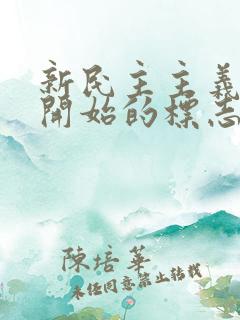 新民主主義
開始的標志
陳培華
未經同意禁止轉載